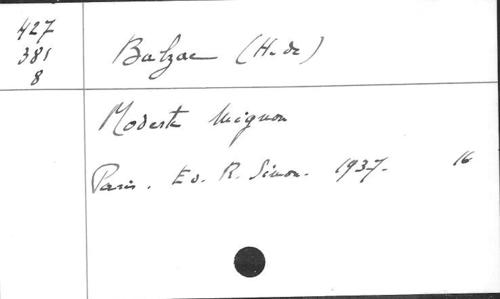 427
381
8
Balzac (H. de)
Modeste Mignon
Paris. Ed. R. Simon. 1937. 16